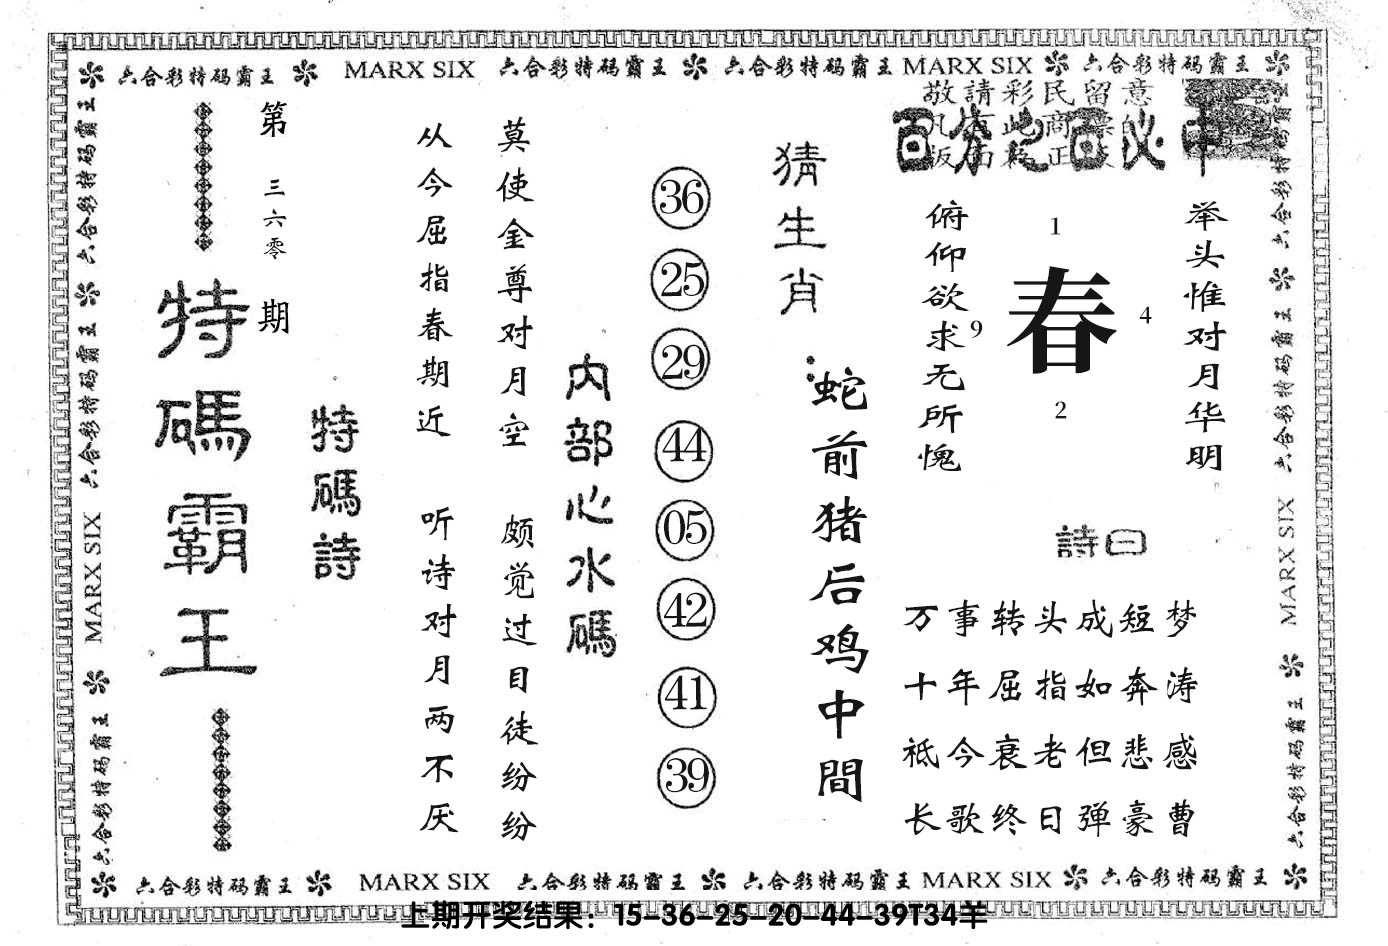 六合彩特码霸王 MARX SIX 六合彩特码霸王 六合彩特码霸王 MARX SIX 六合彩特码霸王
敬請彩民留意
百分之百必中
举头惟对月华明
俯仰欲求无所愧
1
9
春
4
2
詩曰
万事转头成短梦
十年屈指如奔涛
祗今衰老但悲感
长歌终日弹豪曹
猜生肖：
蛇前猪后鸡中間
36
25
29
44
05
42
41
39
内部心水碼
莫使金尊对月空
颇觉过目徒纷纷
从今屈指春期近
听诗对月两不厌
特碼詩
第三六零期
特碼霸王
六合彩特码霸王 六合彩特码霸王 六合彩特码霸王 MARX SIX 六合彩特码霸王
六合彩特码霸王 六合彩特码霸王 MARX SIX 六合彩特码霸王
六合彩特码霸王 MARX SIX 六合彩特码霸王 六合彩特码霸王 MARX SIX 六合彩特码霸王
上期开奖结果：15-36-25-20-44-39T34羊